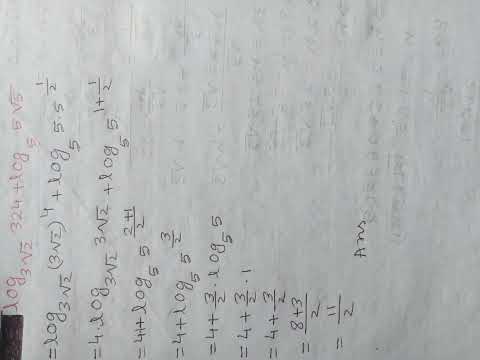 log₃√₂ 324 + log₅ 5√5
= log₃√₂ (3√2)⁴ + log₅ 5·5^{1/2}
= 4·log₃√₂ 3√2 + log₅ 5^{1+1/2}
= 4 + log₅ 5^{(2+1)/2}
= 4 + log₅ 5^{3/2}
= 4 + 3/2 · log₅ 5
= 4 + 3/2 · 1
= 4 + 3/2
= (8+3)/2
= 11/2
Ans.